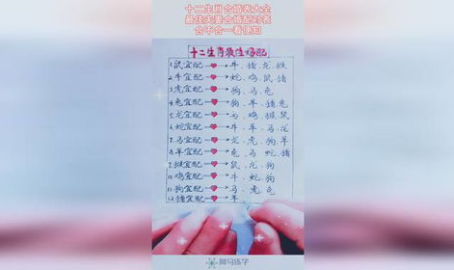 十二生肖合婚表大全
最佳夫妻合婚配对表
合不合一看便知
十二生肖最佳婚配
1.鼠宜配→牛、猪、龙、猴
2.牛宜配→蛇、鸡、鼠、猪
3.虎宜配→狗、马、兔
4.兔宜配→狗、羊、猪、兔
5.龙宜配→马、鸡、猴、鼠
6.蛇宜配→牛、羊、马、龙
7.马宜配→龙、虎、狗、羊
8.羊宜配→兔、马、蛇、猪
9.猴宜配→鼠、龙、狗
10.鸡宜配→牛、蛇、狗
11.狗宜配→马、虎、兔
12.猪宜配→羊
练字